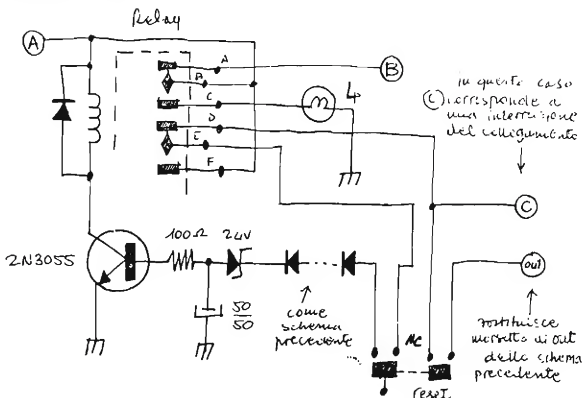 Relay
A
A
B
B
C
D
E
F
in questo caso
C corrisponde a
una interruzione
del collegamento
C
2N3055
100Ω
24V
50
50
come
schema
precedente
NC
out
sostituisce
morsetto di out
dello schema
precedente
reset